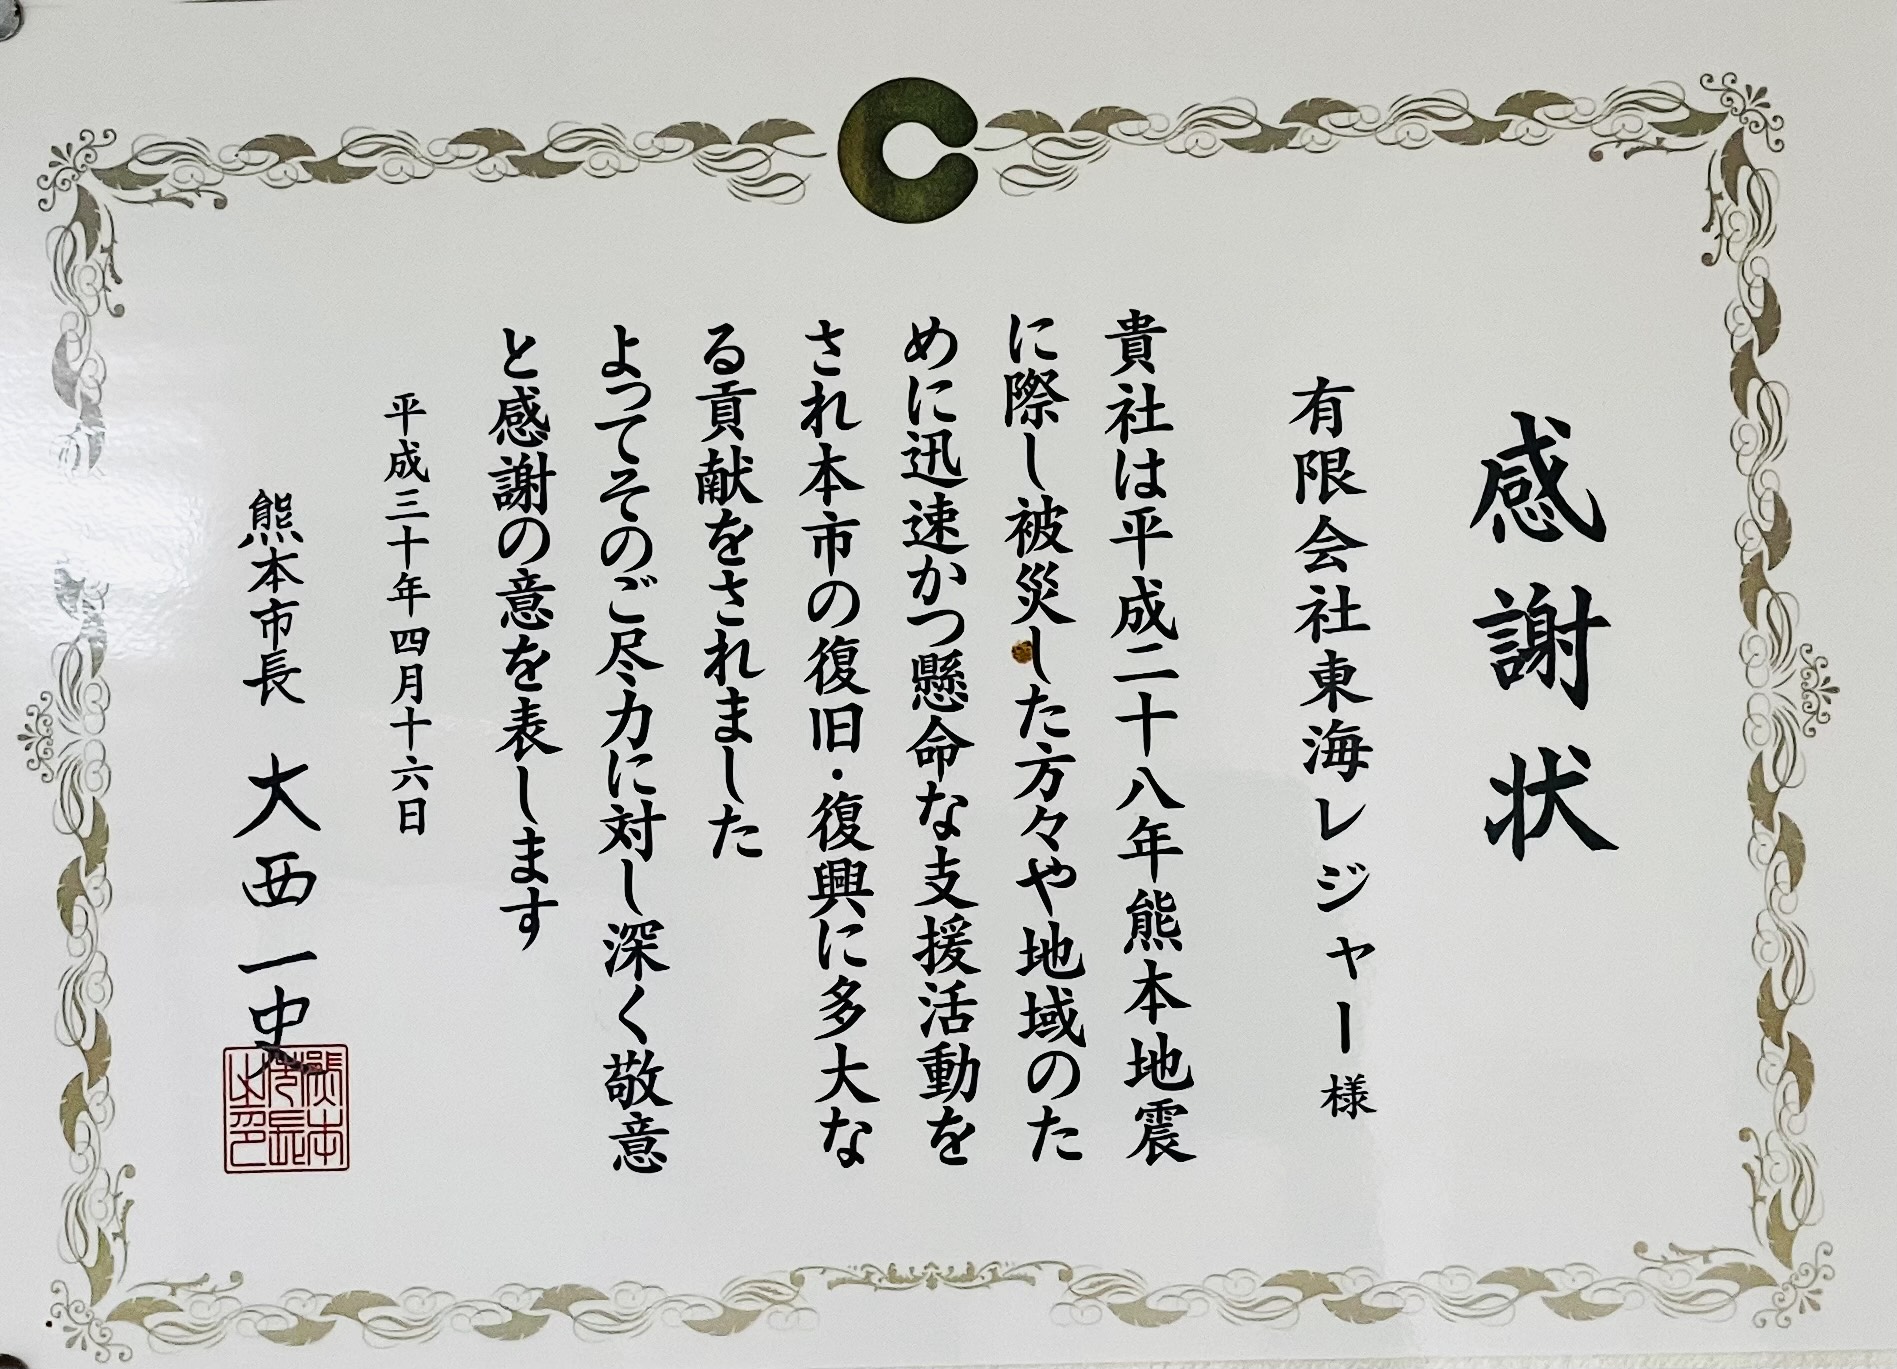 感謝状
有限会社東海レジャー様
貴社は平成二十八年熊本地震
に際し被災した方々や地域のた
めに迅速かつ懸命な支援活動を
され本市の復旧・復興に多大な
る貢献をされました
よってそのご尽力に対し深く敬意
と感謝の意を表します
平成三十年四月十六日
熊本市長 大西一史
熊本
市長
之印